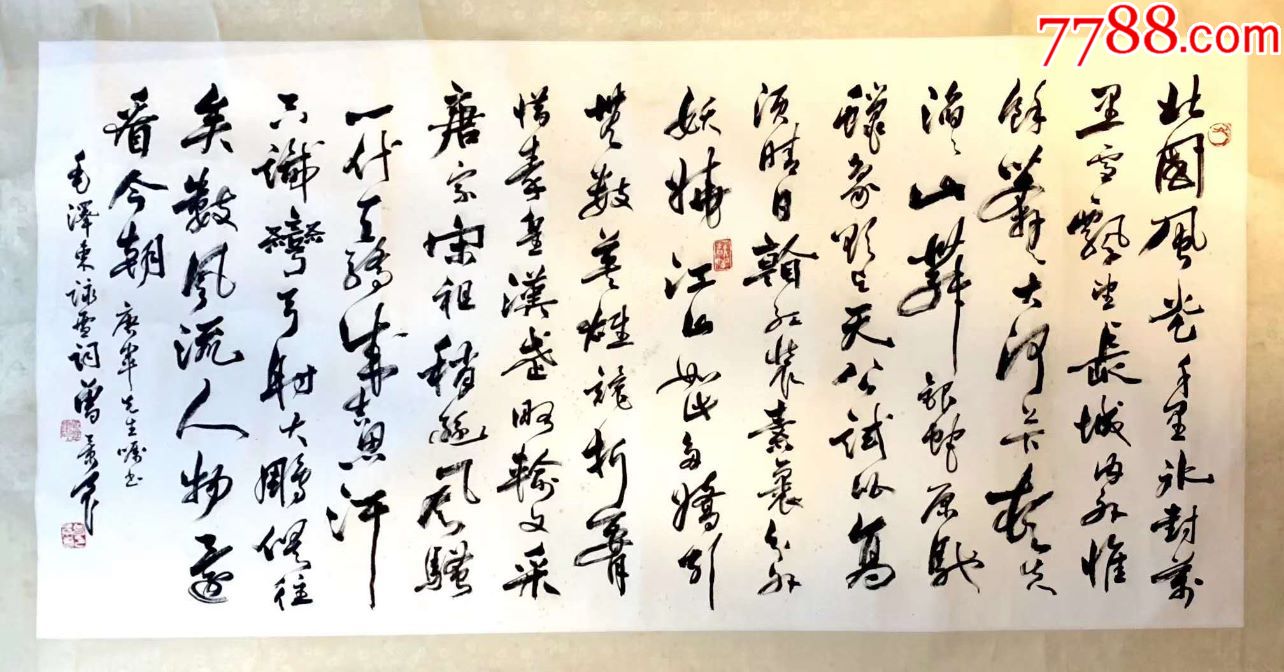 7788.com
北國風光千里冰封萬
里雪飄望長城內外惟
餘莽〻大河上下頓失
滔〻山舞銀蛇原馳
蠟象欲與天公試比高
須晴日看紅裝素裹分外
妖嬈江山如此多嬌引
無數英雄競折腰
惜秦皇漢武略輸文采
唐宗宋祖稍遜風騷
一代天驕成吉思汗
只識彎弓射大鵰俱往
矣數風流人物還
看今朝
先生囑書
毛澤東詠雪詞曾景